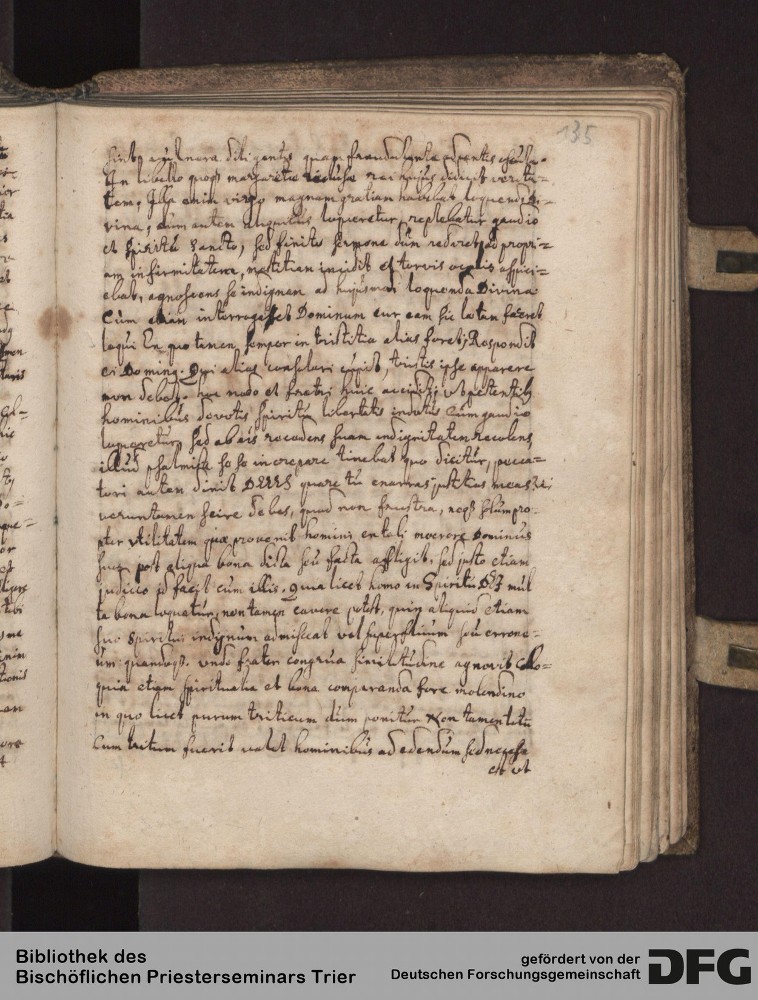 135
sint vulnera diligentis quam fraudulenta odientis oscula.
In libello quoq; margaritæ recluse
tem, Illa enim virgo magnam gratiam habebat loquendi di-
vina, cum autem aliquibus loqueretur, replebatur gaudio
et Spiritu Sancto, sed finito sermone dum rediret ad propri-
am infirmitatem, mœstitiam incidit et torvis oculis aspici-
ebat, agnoscens se indignam ad hujusmodi loquenda Divina
Cum etiam interrogasset Dominum cur eam sic lætam faceret
loqui En quo tamen semper in tristitia alias foret; Respondit
ei Doming. Qui alias consolari cupit, tristis ipse apparere
non debet. hoc modo et fratri huic accidit; ut petentibg
hominibus devotis spiritu libertatis indutus Cum gaudio
loqueretur, sed ab eis recedens suam indignitatem recolens
illud psalmistæ se se increpare timebat quo dicitur, pecca-
tori autem dixit DEUS quare tu enarras justitias meas &c;
veruntamen scire debes, quod non frustra, neq; solum pro-
pter utilitatem quæ provenit homini en tali mœrore Dominus
suos post aliqua bona dicta seu facta affligit, sed justo etiam
judicio id facit cum illis. Quia licet homo en Spiritu DEI mul
ta bona loquatur, non tamen cavere potest, quin aliquid etiam
suo Spiritui indignum admisceat vel superfluum seu errone-
um quandoq;. unde frater congrua similitudine agnovit Collo-
quia etiam spiritualia et bona comparanda fore molendino
in quo licet purum triticum dum ponitur Non tamen totum
Cum tritum fuerit valet hominibus ad edendum sed necesse
est ut
Bibliothek des
Bischöflichen Priesterseminars Trier
gefördert von der
Deutschen Forschungsgemeinschaft
DFG